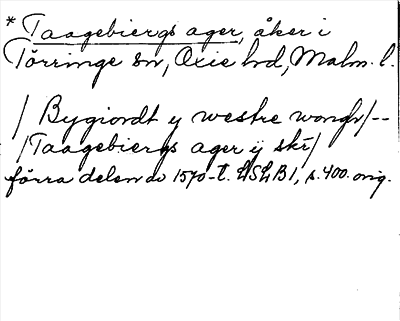 * Taagebiergs ager, åker i
Törringe sn, Oxie hd, Malm. l.
/ Bygiordt y westre wongh/--
/Taagebiergs ager ij sk̄r/
förra delen av 1570-t. LSLB1, s. 400. orig.